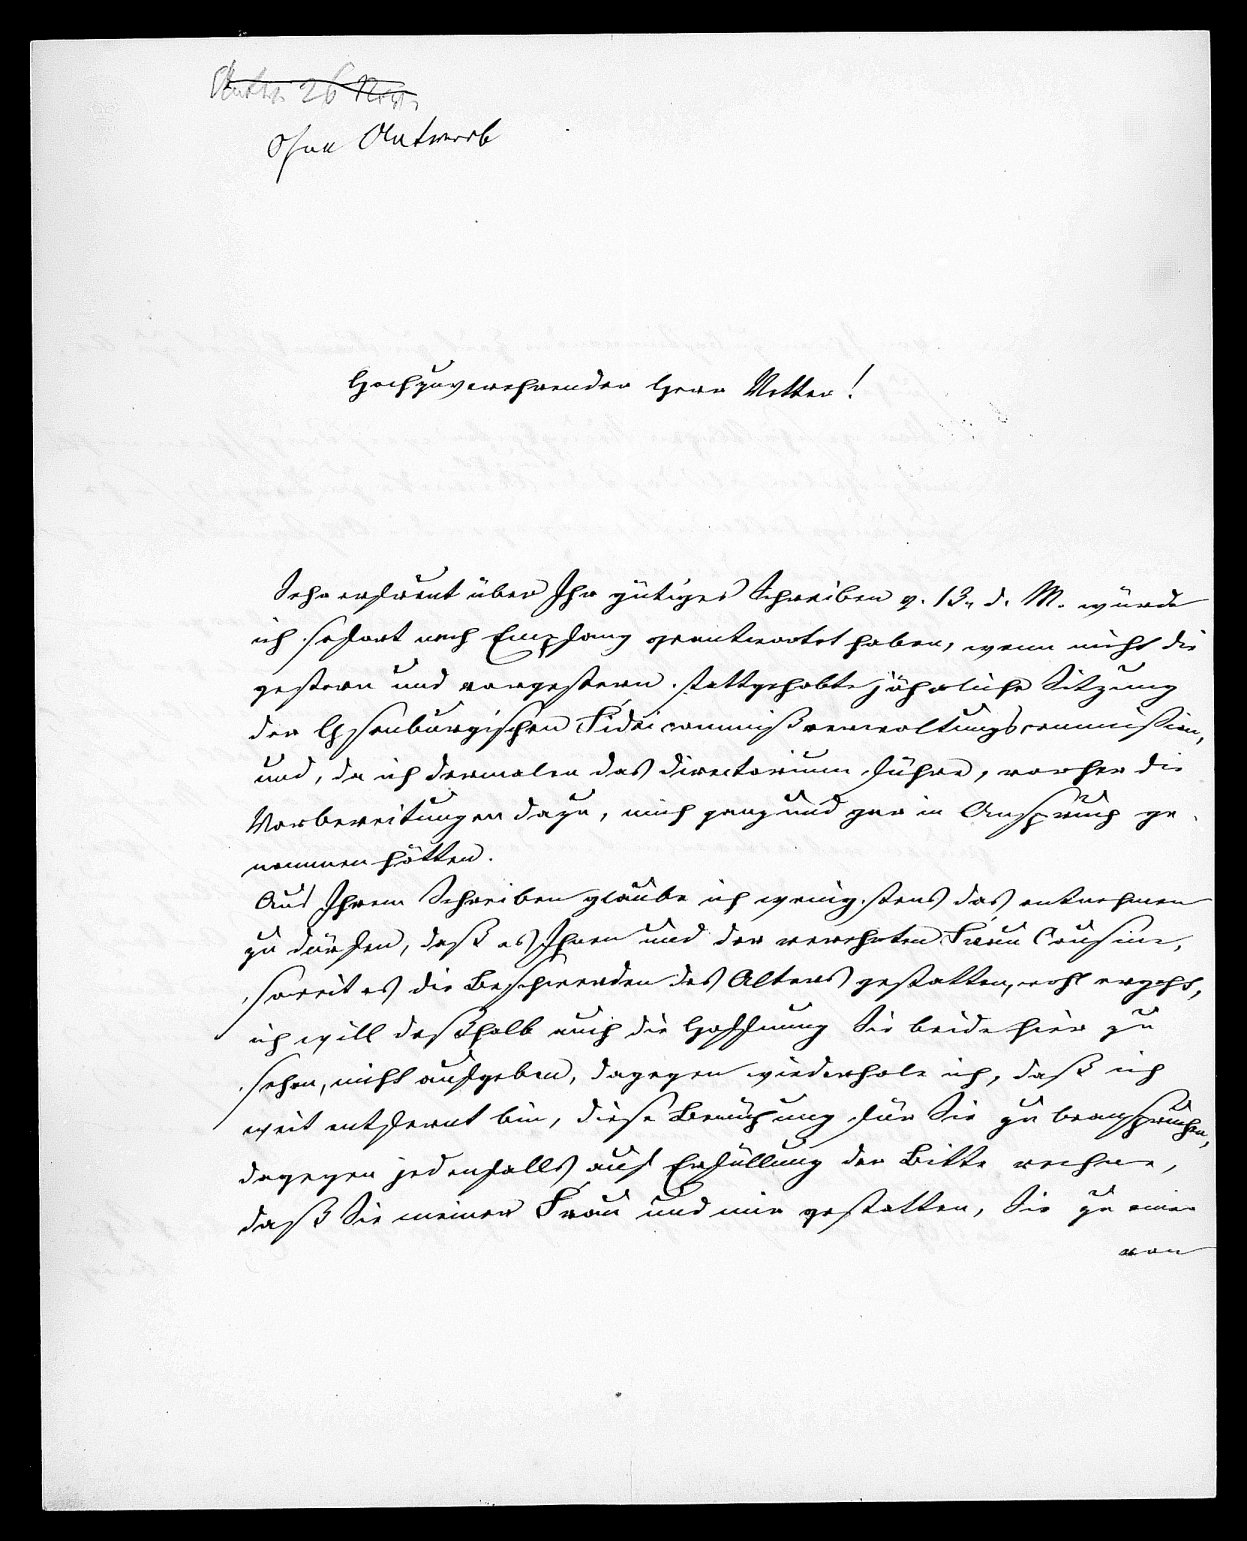 26 Nov.
Ohne Antwort
Hochzuverehrender Herr Vetter!
Sehr erfreut über Ihr gütiges Schreiben v. 13. d. M. würde
ich sofort nach Empfang geantwortet haben, wenn nicht die
gestern und vorgestern stattgehabte jährliche Sitzung
der Ysenburgischen Fideicommißverwaltungscommission,
und, da ich dermalen das Directorium führe, vorher die
Vorbereitungen dazu, mich ganz und gar in Anspruch ge-
nommen hätten.
Aus Ihrem Schreiben glaube ich wenigstens das entnehmen
zu dürfen, daß es Ihnen und der verehrten Frau Cousine,
soweit es die Beschwerden des Alters gestatten, wohl ergeht,
ich will deßhalb auch die Hoffnung Sie beide hier zu
sehen, nicht aufgeben, dagegen wiederhole ich, daß ich
weit entfernt bin, diese Bemühung für Sie zu beanspruchen,
dagegen jedenfalls auf Erfüllung der Bitte rechne,
daß Sie meiner Frau und mir gestatten, Sie zu einer
von